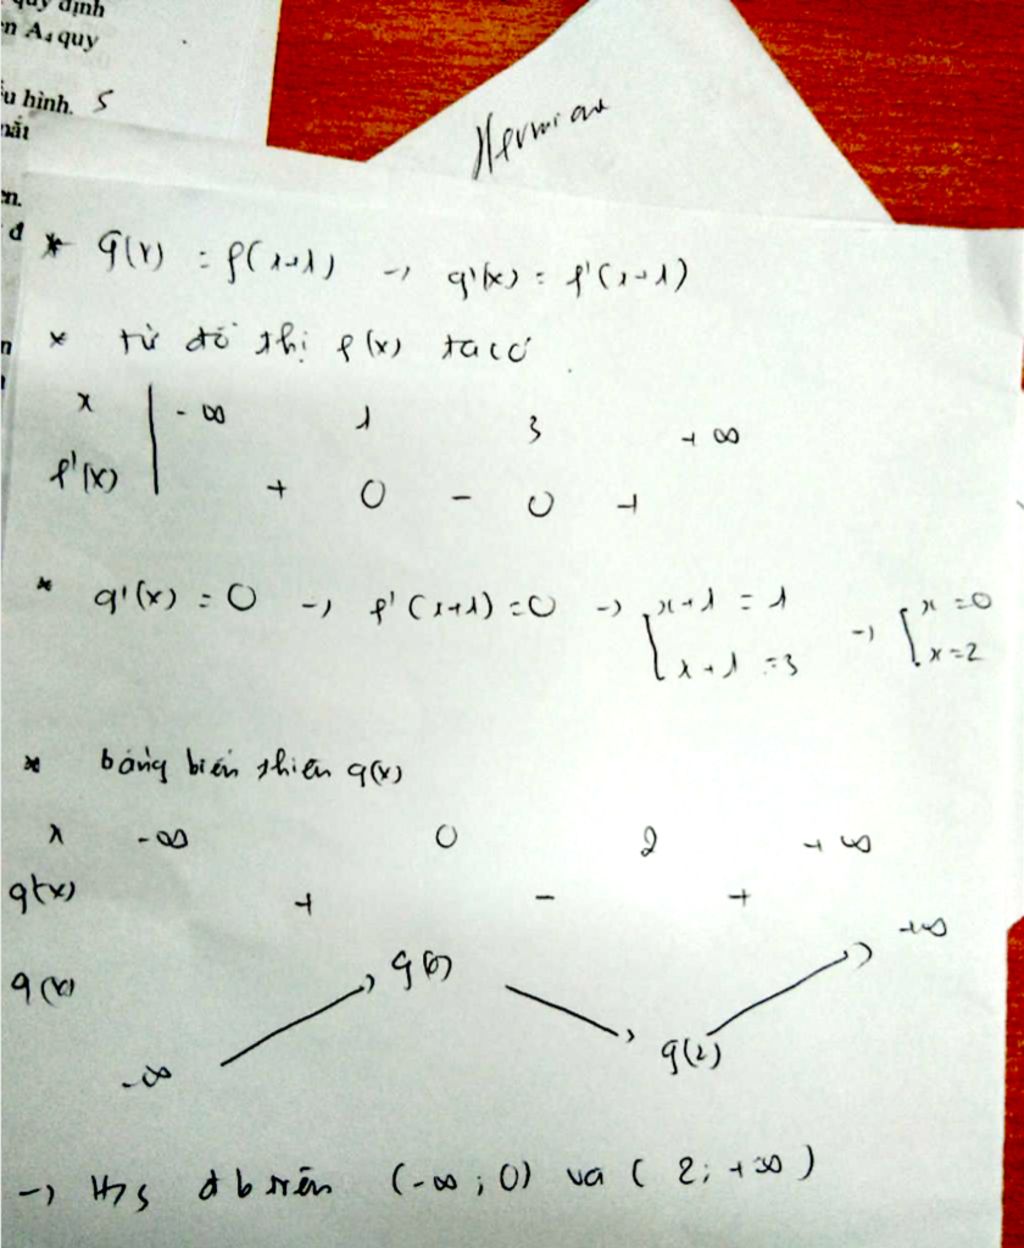 quy định
ên A₄ quy
u hình. 5
mất
en.
đ
n
Herman
* g(x) = f(x+1) -> g'(x) = f'(x+1)
* từ đồ thị f(x) ta có
x | -∞ 1 3 +∞
f'(x) | + 0 - 0 +
* g'(x) = 0 -> f'(x+1) = 0 -> [ x+1 = 1 -> [ x = 0
x+1 = 3 x = 2
* bảng biến thiên g(x)
x -∞ 0 2 +∞
g'(x) + - +
+∞
g(x) g(0)
g(2)
-∞
-> H/s đb trên (-∞; 0) va (2; +∞)